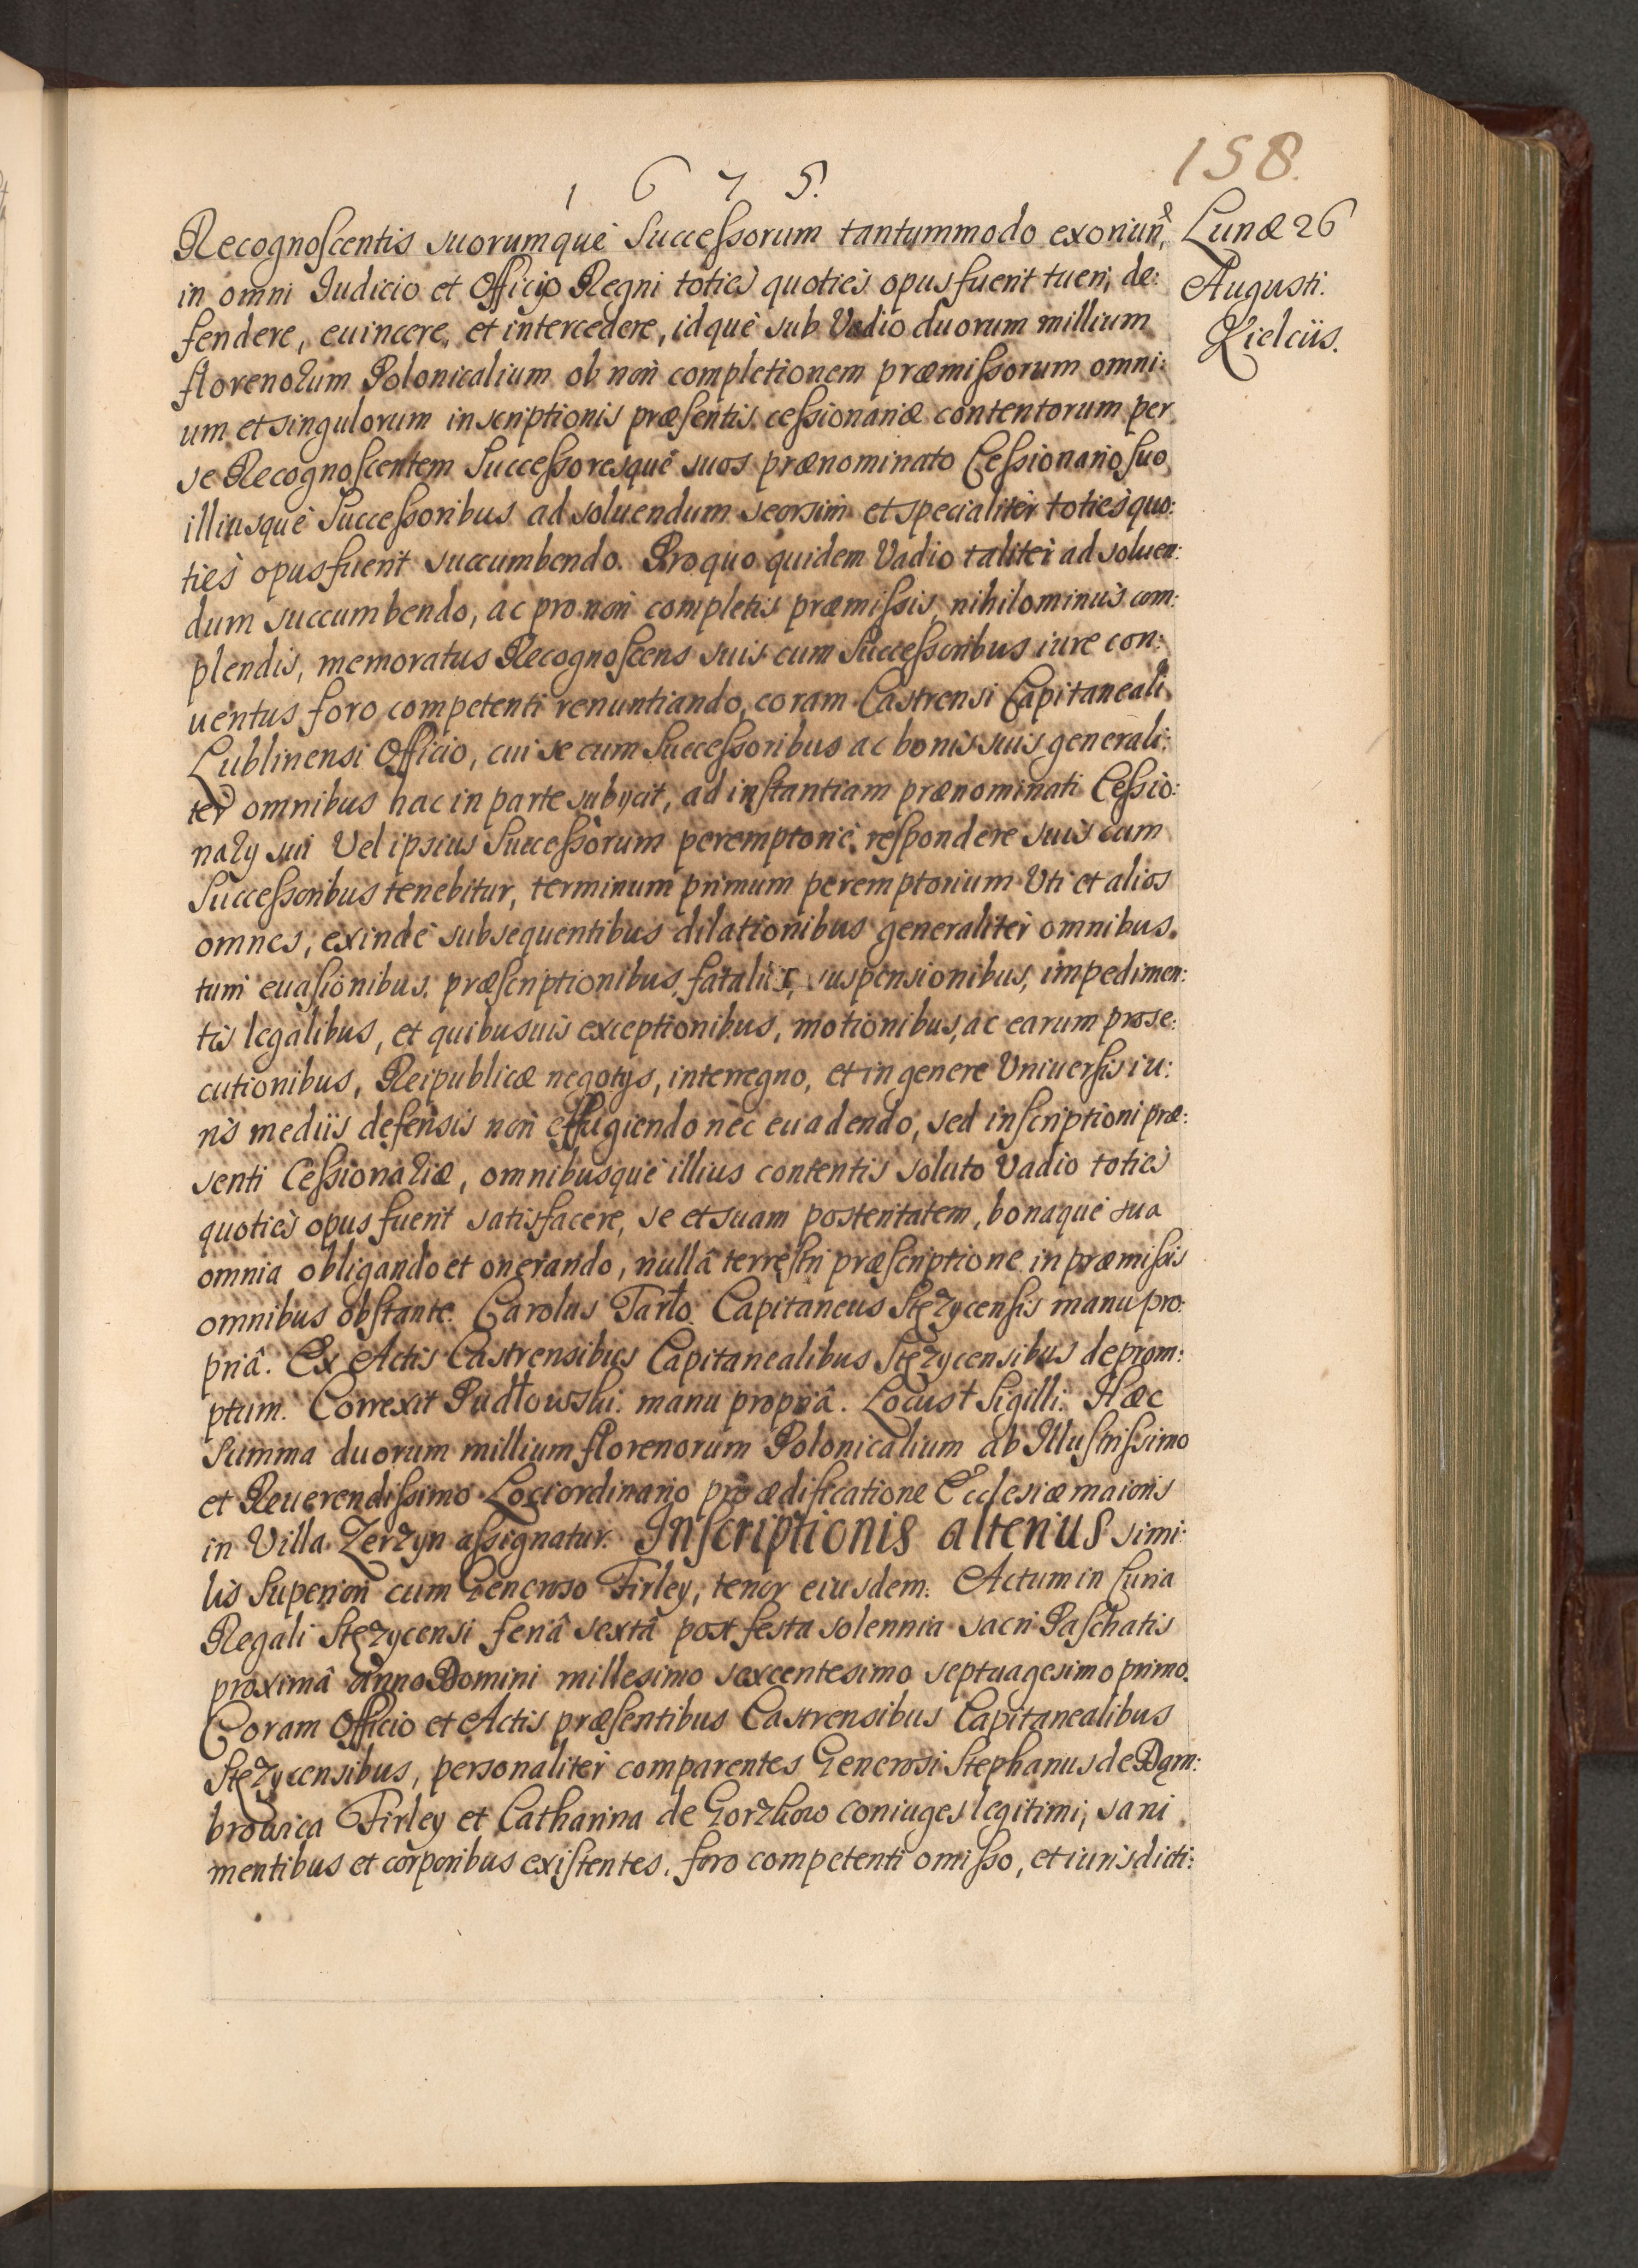 158.
1 6 7 5.
Recognoscentis suorumquè Successorum tantummodo exoriund,
in omni Iudicio et Officio Regni totiès quotiès opus fuerit tueri, de:
fendere, euincere, et intercedere, idquè sub Vadio duorum millium
florenorum Polonicalium ob non completionem præmissorum omni:
um et singulorum inscriptionis præsentis cessionariæ contentorum per
se Recognoscentem Successoresquè suos prænominato Cessionario suo
illiusquè Successoribus ad soluendum seorsim et specialitèr totiès quo:
tiès opus fuerit succumbendo. Pro quo quidem Vadio talitèr ad soluen:
dum succumbendo, ac pro non completis præmissis, nihilominùs com:
plendis, memoratus Recognoscens suis cum Successoribus iure con:
uentus foro competenti renuntiando, coram Castrensi Capitaneali
Lublinensi Officio, cui se cum Successoribus ac bonis suis generali:
ter omnibus hac in parte subycit, ad instantiam prænominati Cessio:
nary sui Vel ipsius Successorum peremptoriè respondere suis cum
Successoribus tenebitur, terminum primum peremptorium Uti et alios
omnes, exindè subsequentibus dilationibus generalitèr omnibus,
tum euasionibus, præscriptionibus, fatalijs, suspensionibus, impedimen:
tis legalibus, et quibusuis exceptionibus, motionibus, ac earum prose:
cutionibus, Reipublicæ negotys, interregno, et in genere Uniuersis iu:
ris mediis defensis non effugiendo nèc euadendo, sed inscriptioni præ:
senti Cessionariæ, omnibusquè illius contentis soluto Vadio totiès
quotiès opus fuerit satisfacere, se et suam posteritatem, bonaquè sua
omnia obligando et onerando, nullâ terrestri præscriptione in præmissis
omnibus obstante. Carolus Tarło Capitaneus Stęzycensis manu pro:
priâ. Ex Actis Castrensibus Capitanealibus Stęzycensibus deprom:
ptum. Correxit Pudłowski manu propriâ. Locus † Sigilli. Hæc
Summa duorum millium florenorum Polonicalium ab Illustrissimo
et Reuerendissimo Loci ordinario pro ædificatione Ecclesiæ maioris
in Villa Zerzyn assignatur. Inscriptionis alterius simi:
lis Superiori cum Generoso Firley, tenor eiusdem. Actum in Curia
Regali Stęzycensi feriâ sextâ post festa solennia sacri Paschatis
proximâ anno Domini millesimo sexcentesimo septuagesimo primo.
Coram Officio et Actis præsentibus Castrensibus Capitanealibus
Stęzycensibus, personalitèr comparentes Generosi Stephanus de Dąm:
browica Firley et Catharina de Gorzkow coniuges legitimi, sani
mentibus et corporibus existentes, foro competenti omisso, et iurisdicti:
Lunæ 26
Augusti.
Kielciis.